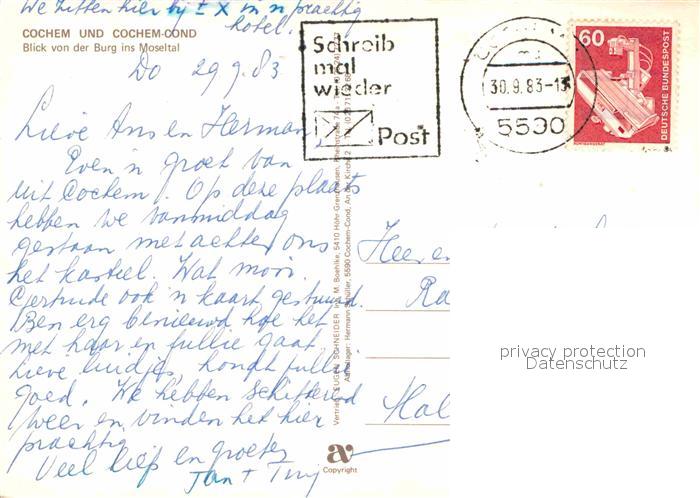 We zitten hier bij ± X in 'n prachtig
hotel.
COCHEM UND COCHEM-COND
Blick von der Burg ins Moseltal
Do 29.9.83
Schreib
mal
wieder
Post
30.9.83-13
5590
60
DEUTSCHE BUNDESPOST
Lieve Ans en Herman,
Even 'n groet van
uit Cochem. Op deze plaats
hebben we vanmiddag
gestaan met achter ons
het kasteel. Wat mooi.
Gertrude ook 'n kaart gestuurd.
Ben erg benieuwd hoe het
met haar en jullie gaat.
Lieve luidjes, houdt jullie
goed. We hebben schitterend
weer en vinden het hier
prachtig.
Veel liefs en groeten
Jan + Tiny
Heer en
Ra
Hol
Vertrieb: EUGEN SCHNEIDER Inh. M. Boehlke, 5410 Höhr-Grenzhausen,
Auslieferungslager: Hermann Schüller, 5590 Cochem-Cond, An der Kirche 2
av
Copyright
privacy protection
Datenschutz